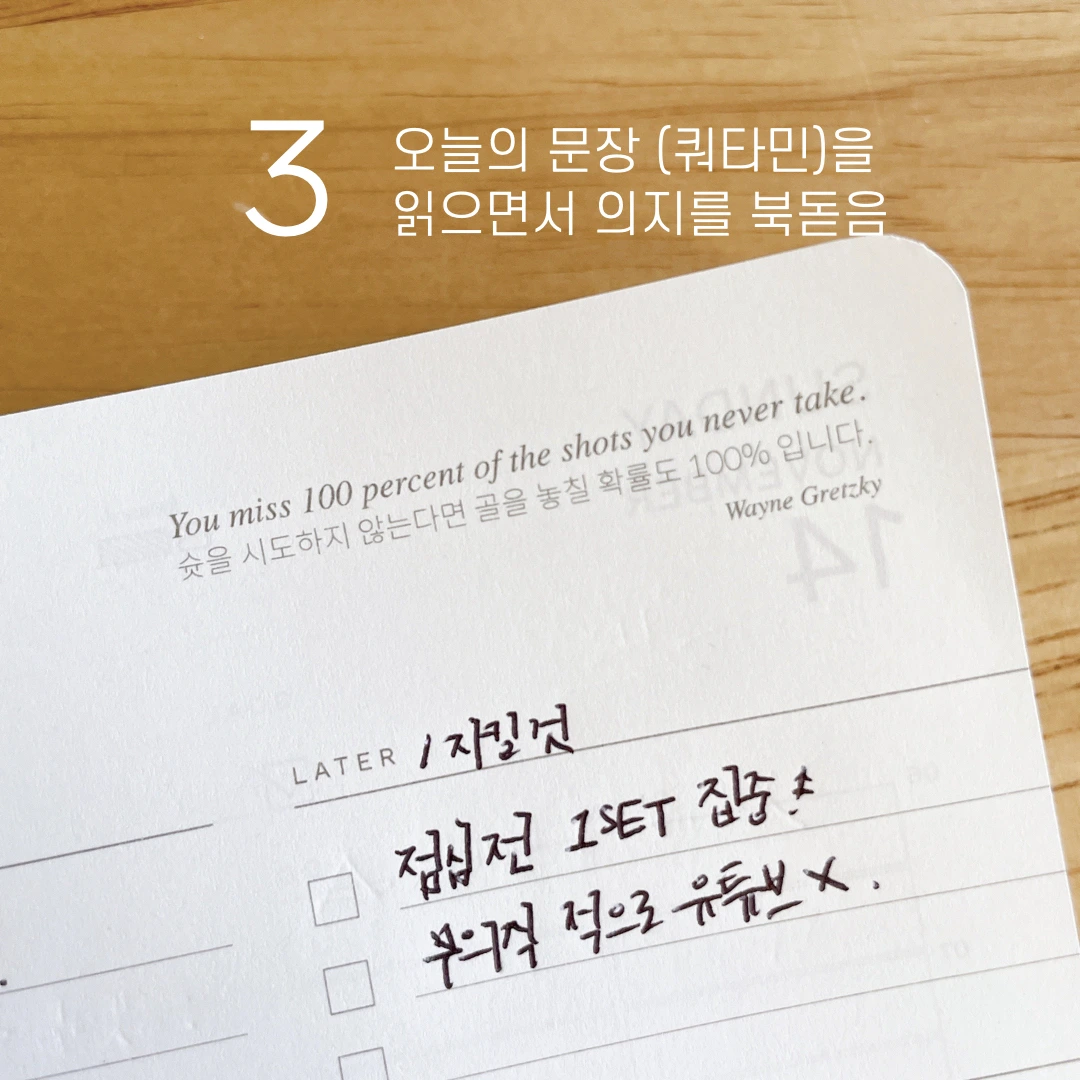 3
오늘의 문장 (쿼타민)을
읽으면서 의지를 북돋음
You miss 100 percent of the shots you never take.
슛을 시도하지 않는다면 골을 놓칠 확률도 100% 입니다.
Wayne Gretzky
SUNDAY
NOVEMBER
14
LATER / 지킬것
점심전 1SET 집중!
무의식 적으로 유튜브 X.